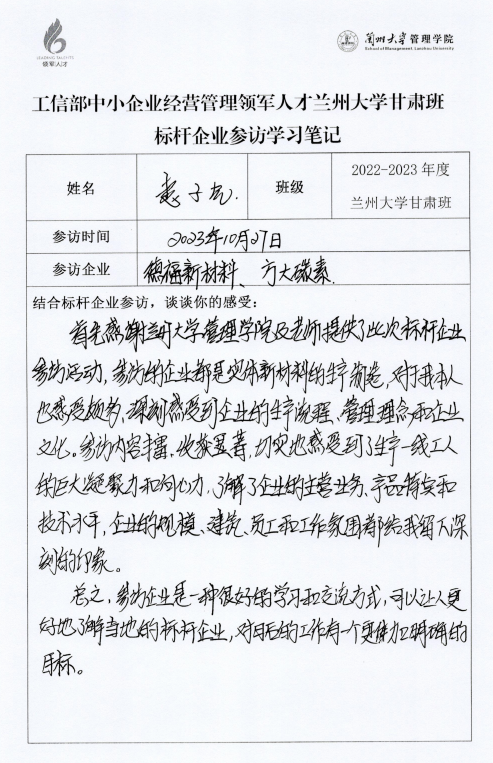 LEADING TALENTS
领军人才
兰州大学管理学院
School of Management, Lanzhou University
工信部中小企业经营管理领军人才兰州大学甘肃班
标杆企业参访学习笔记
姓名
班级
2022-2023 年度
兰州大学甘肃班
参访时间
2023年10月27日
参访企业
德福新材料、方大碳素.
结合标杆企业参访，谈谈你的感受：
首先感谢兰州大学管理学院及老师提供了此次标杆企业
参访活动，参访的企业都是实体新材料的生产制造，对于我本人
也感受颇多，深刻感受到企业的生产流程、管理理念和企业
文化。参访内容丰富，收获显著，切实地感受到了生产一线工人
的巨大凝聚力和向心力，了解了企业的主营业务、产品特实和
技术水平，企业的规模、建筑、员工和工作氛围都给我留下深
刻的印象。
总之，参访企业是一种很好的学习和交流方式，可以让人更
好地了解当地的标杆企业，对日后的工作有一个更加明确的
目标。